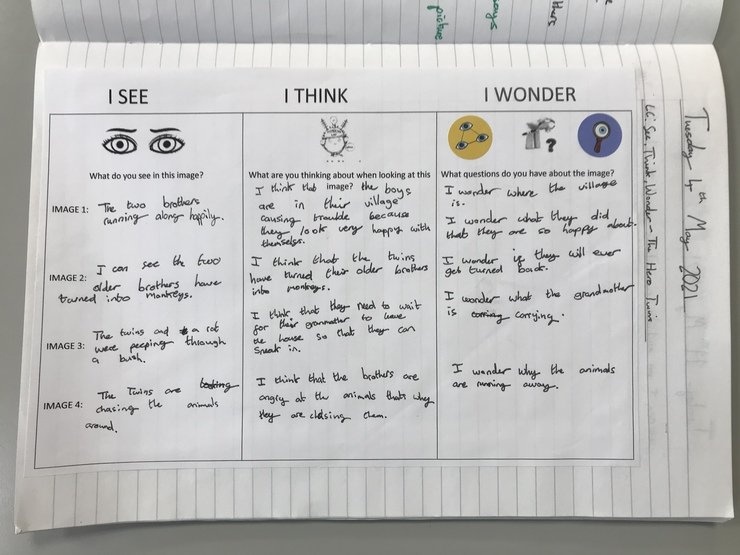 says
picture
thers
Tuesday 4th May 2021
LC: See, Think, Wonder - The Hero Twins
I SEE
I THINK
I WONDER
What do you see in this image?
What are you thinking about when looking at this
image?
What questions do you have about the image?
IMAGE 1:
The two brothers
running along happily.
I think that the boys
are in their village
causing trouble because
they look very happy with
themselfs.
I wonder where the village
is.
I wonder what they did
that they are so happy about.
IMAGE 2:
I can see the two
older brothers have
turned into monkeys.
I think that the twins
have turned their older brothers
into monkeys.
I wonder if they will ever
get turned back.
IMAGE 3:
The twins and a rat
were peeping through
a bush.
I think that they need to wait
for their granmother to leave
the house so that they can
sneak in.
I wonder what the grandmother
is carrying.
IMAGE 4:
The Twins are looking
chasing the animals
around.
I think that the brothers are
angry at the animals thats why
they are chasing them.
I wonder why the animals
are running away.